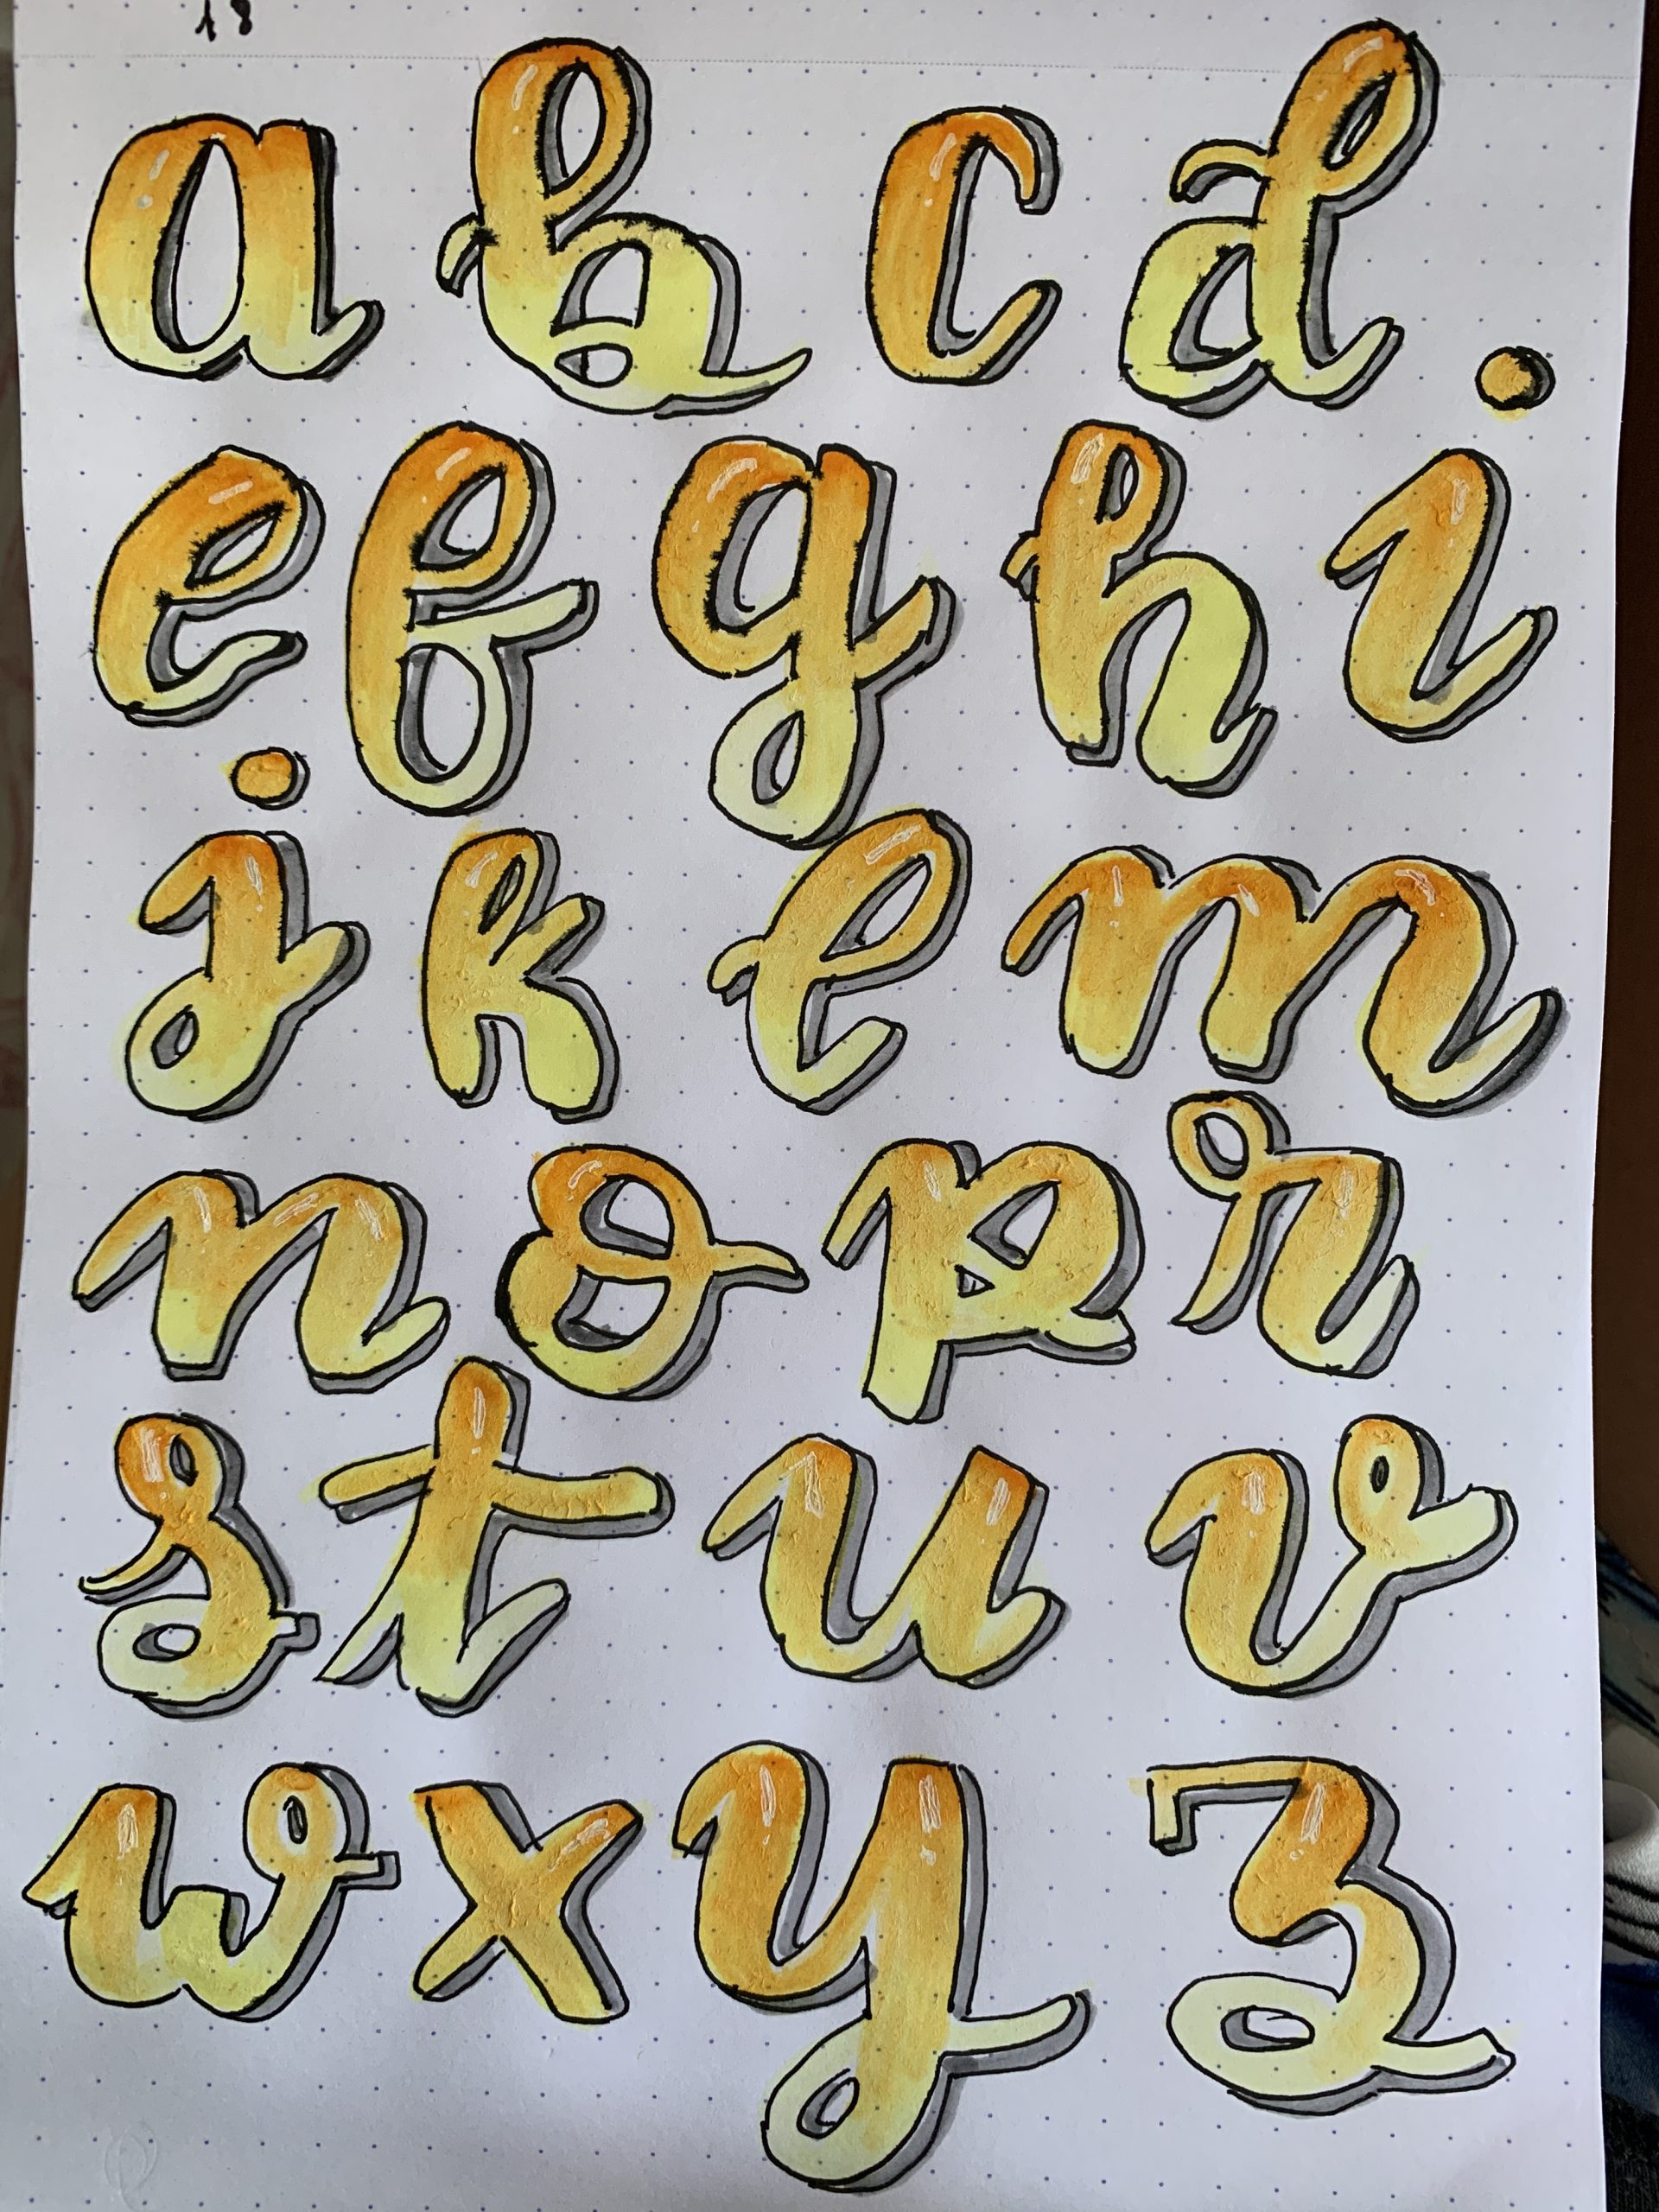 18
a b c d
e f g h i
j k l m
n o p r
s t u v
w x y z